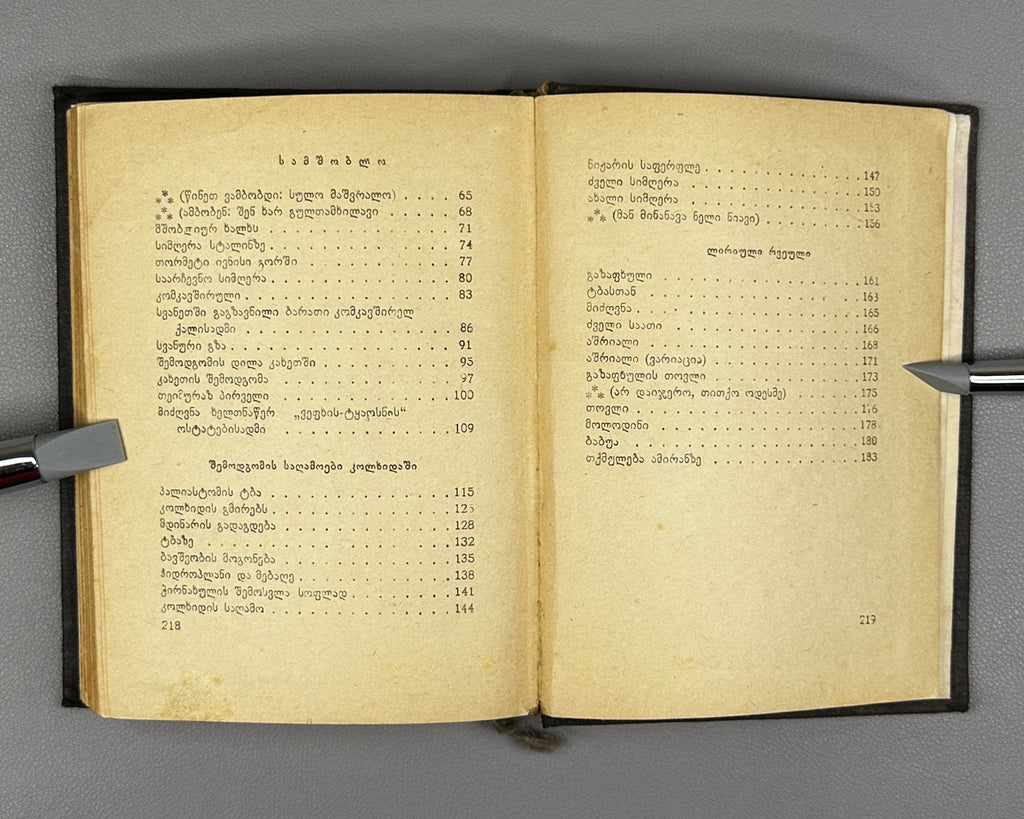 სამშობლო
⁂ (წინეთ ვამბობდი: სულო მაშვრალო) . . . . 65
⁂ (ამბობენ: შენ ხარ გულთამხილავი . . . . . 68
მშობლიურ ხალხს . . . . . . . . . . . 71
სიმღერა სტალინზე . . . . . . . . . . . 74
თორმეტი ივნისი გორში . . . . . . . . . 77
საარჩევნო სიმღერა . . . . . . . . . . . 80
კომკავშირული . . . . . . . . . . . . 83
სვანეთში გაგზავნილი ბარათი კომკავშირელ
ქალისადმი . . . . . . . . . . . . 86
სვანური გზა . . . . . . . . . . . . . 91
შემოდგომის დილა კახეთში . . . . . . . . 95
კახეთის შემოდგომა . . . . . . . . . . 97
თეიმურაზ პირველი . . . . . . . . . . 100
მიძღვნა ხელთნაწერ „ვეფხის-ტყაოსნის“
ოსტატებისადმი . . . . . . . . . . 109
შემოდგომის საღამოები კოლხიდაში
პალიასტომის ტბა . . . . . . . . . . . 115
კოლხიდის გმირებს . . . . . . . . . . . 125
მდინარის გადაგდება . . . . . . . . . . 128
ტბაზე . . . . . . . . . . . . . . . 132
ბავშვობის მოგონება . . . . . . . . . . 135
ჰიდროპლანი და მებადე . . . . . . . . . 138
ჭირნახულის შემოსვლა სოფლად . . . . . . . 141
კოლხიდის საღამო . . . . . . . . . . . 144
218
ნიჟარის საფერფლე . . . . . . . . . . . 147
ძველი სიმღერა . . . . . . . . . . . . 150
ახალი სიმღერა . . . . . . . . . . . . 153
⁂ (მან მინანავა ნელი ნიავი) . . . . . . . 156
ლირიული რვეული
გაზაფხული . . . . . . . . . . . . . 161
ტბასთან . . . . . . . . . . . . . . 163
მიძღვნა . . . . . . . . . . . . . . 165
ძველი საათი . . . . . . . . . . . . . 166
აშრიალი . . . . . . . . . . . . . . 168
აშრიალი (ვარიაცია) . . . . . . . . . . 171
გაზაფხულის თოვლი . . . . . . . . . . . 173
⁂ (არ დაიჯერო, თითქო ოდესმე) . . . . . 175
თოვლი . . . . . . . . . . . . . . . 176
მოლოდინი . . . . . . . . . . . . . . 178
ბაბუა . . . . . . . . . . . . . . . 180
თქმულება ამირანზე . . . . . . . . . . 183
219